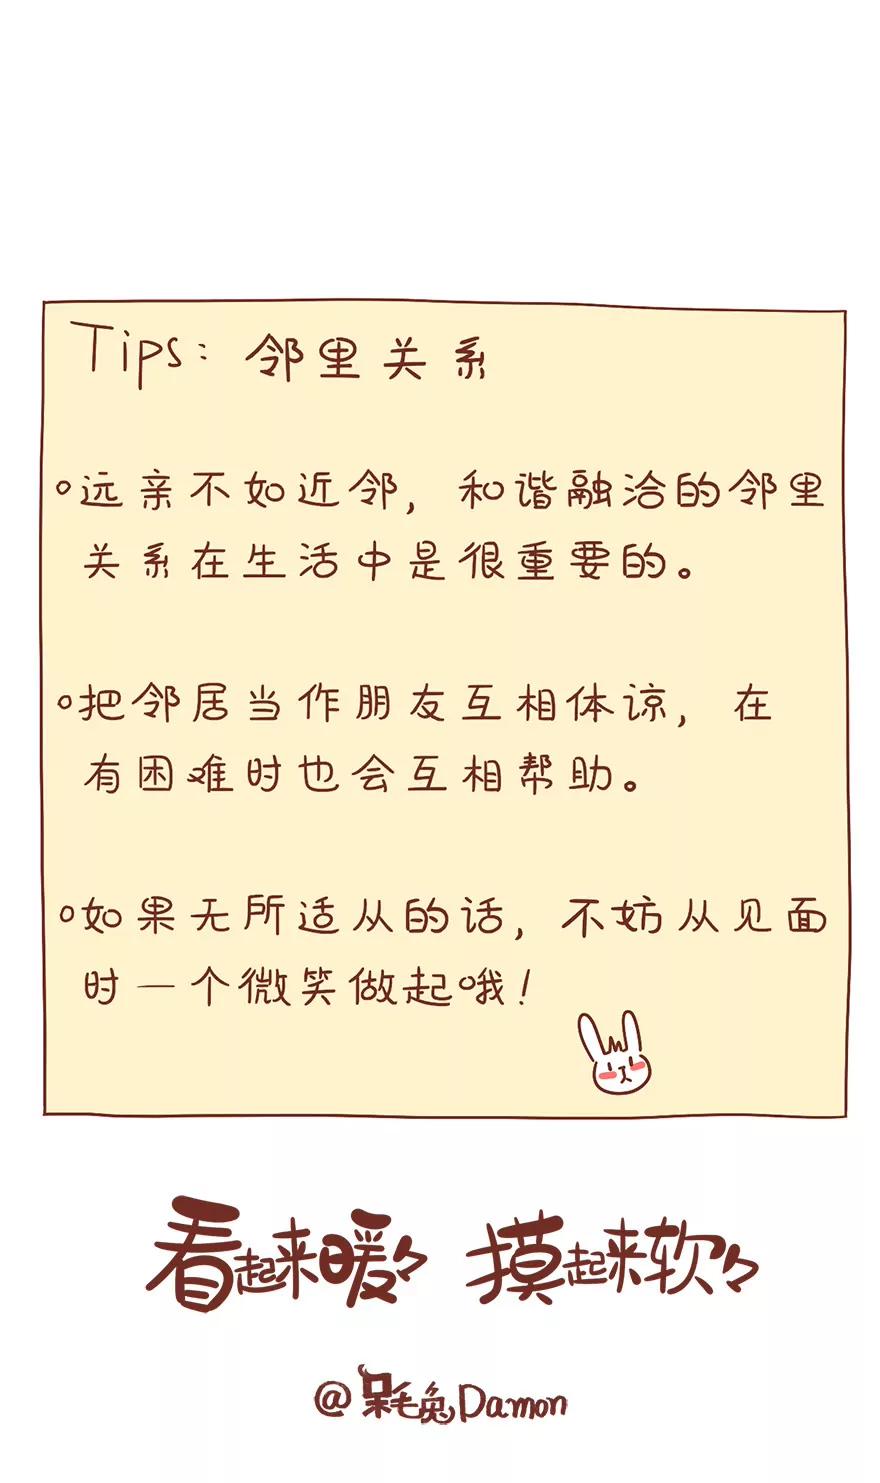 Tips: 邻里关系
远亲不如近邻，和谐融洽的邻里
关系在生活中是很重要的。
把邻居当作朋友互相体谅，在
有困难时也会互相帮助。
如果无所适从的话，不妨从见面
时一个微笑做起哦！
看起来暖々 摸起来软々
@呆毛兔Damon